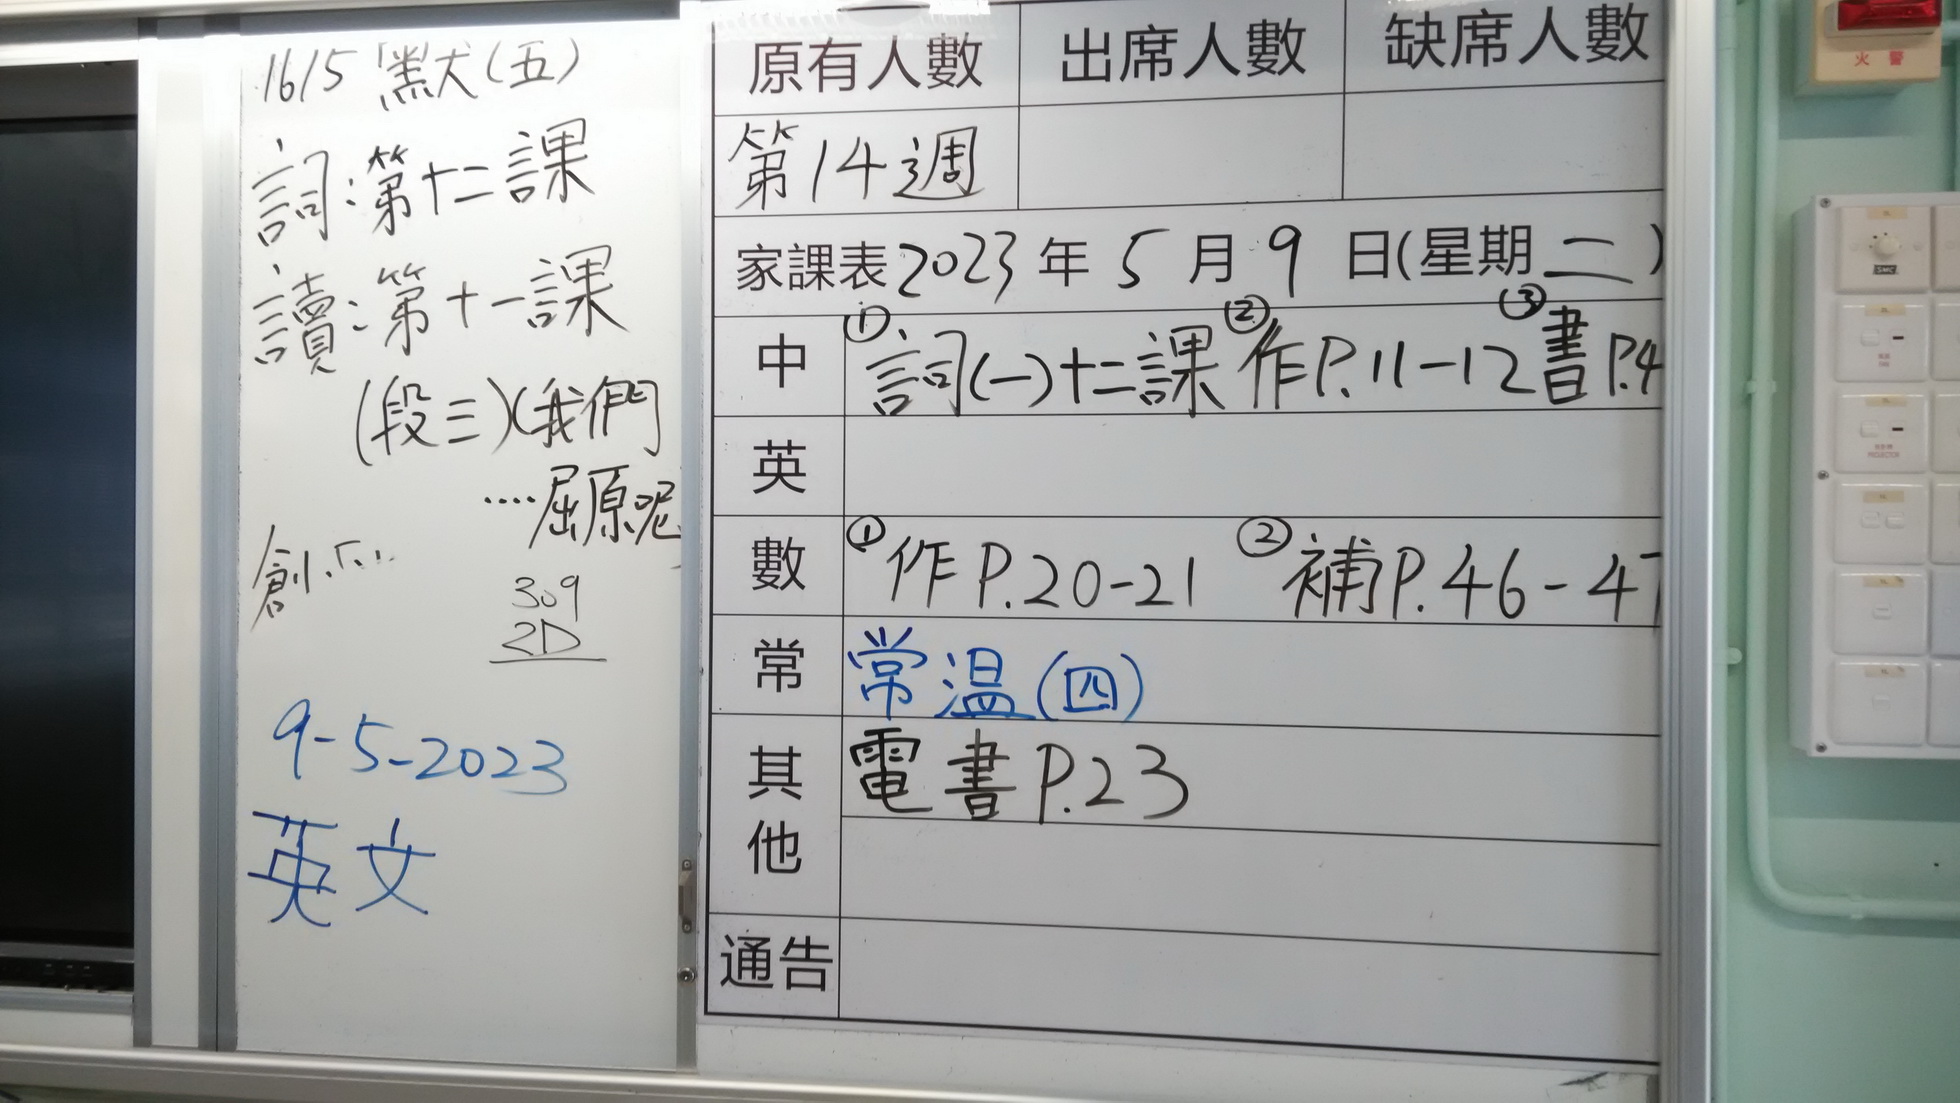 16/5 默(五)
詞:第十二課
讀:第十一課
(段三)(我們
....屈原呢
創
309
2D
9-5-2023
英文
原有人數 出席人數 缺席人數
第14週
家課表2023年5月9日(星期二)
中 ①詞(一)十二課 ②作P.11-12 ③書P.4
英
數 ①作P.20-21 ②補P.46-47
常 常温(四)
其他 電書P.23
通告
火警